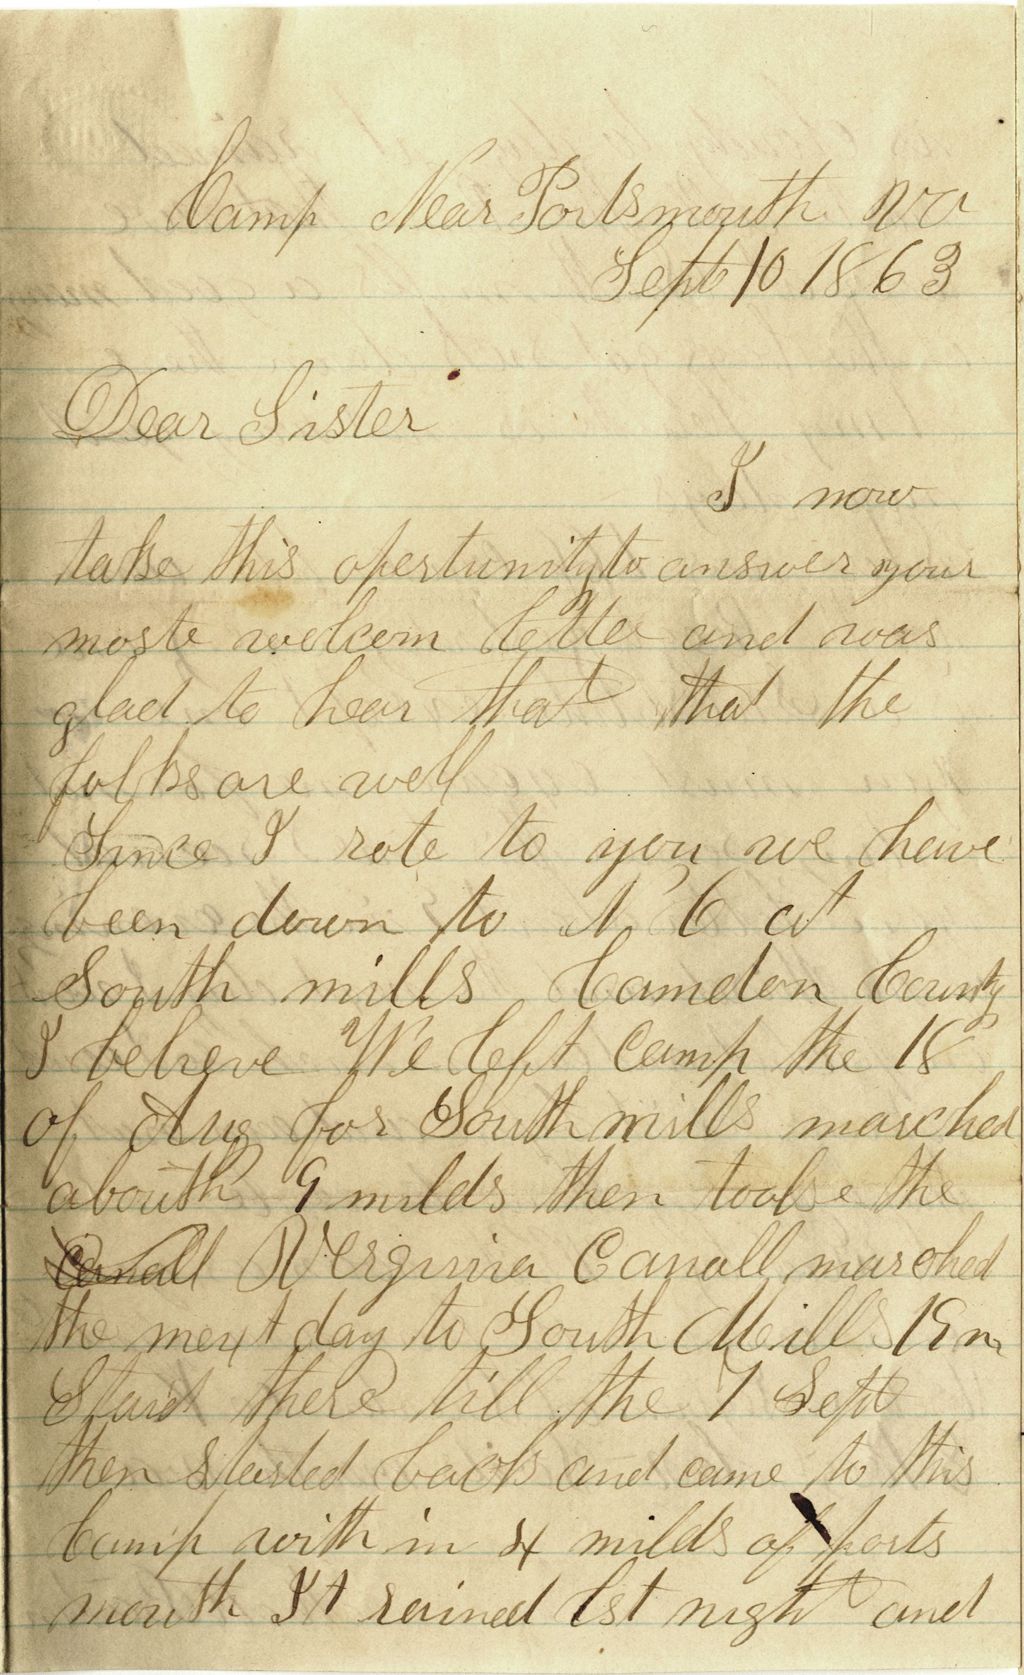 Camp Near Portsmouth Va
Sept 10 1863
Dear Sister
I now
take this opertunity to answer your
moste welcom letter and was
glad to hear that that the
folks are well
Since I rote to you we have
been down to N C at
South mills Camden County
I beleive We left camp the 18
of Aug for South mills marched
abouth 9 milds then tooke the
Canall Verginia Canall marched
the next day to South Mills 19 m
Staid there till the 7 Sept
then started back and came to this
Camp with in 4 milds of ports
mouth It rained lst night and